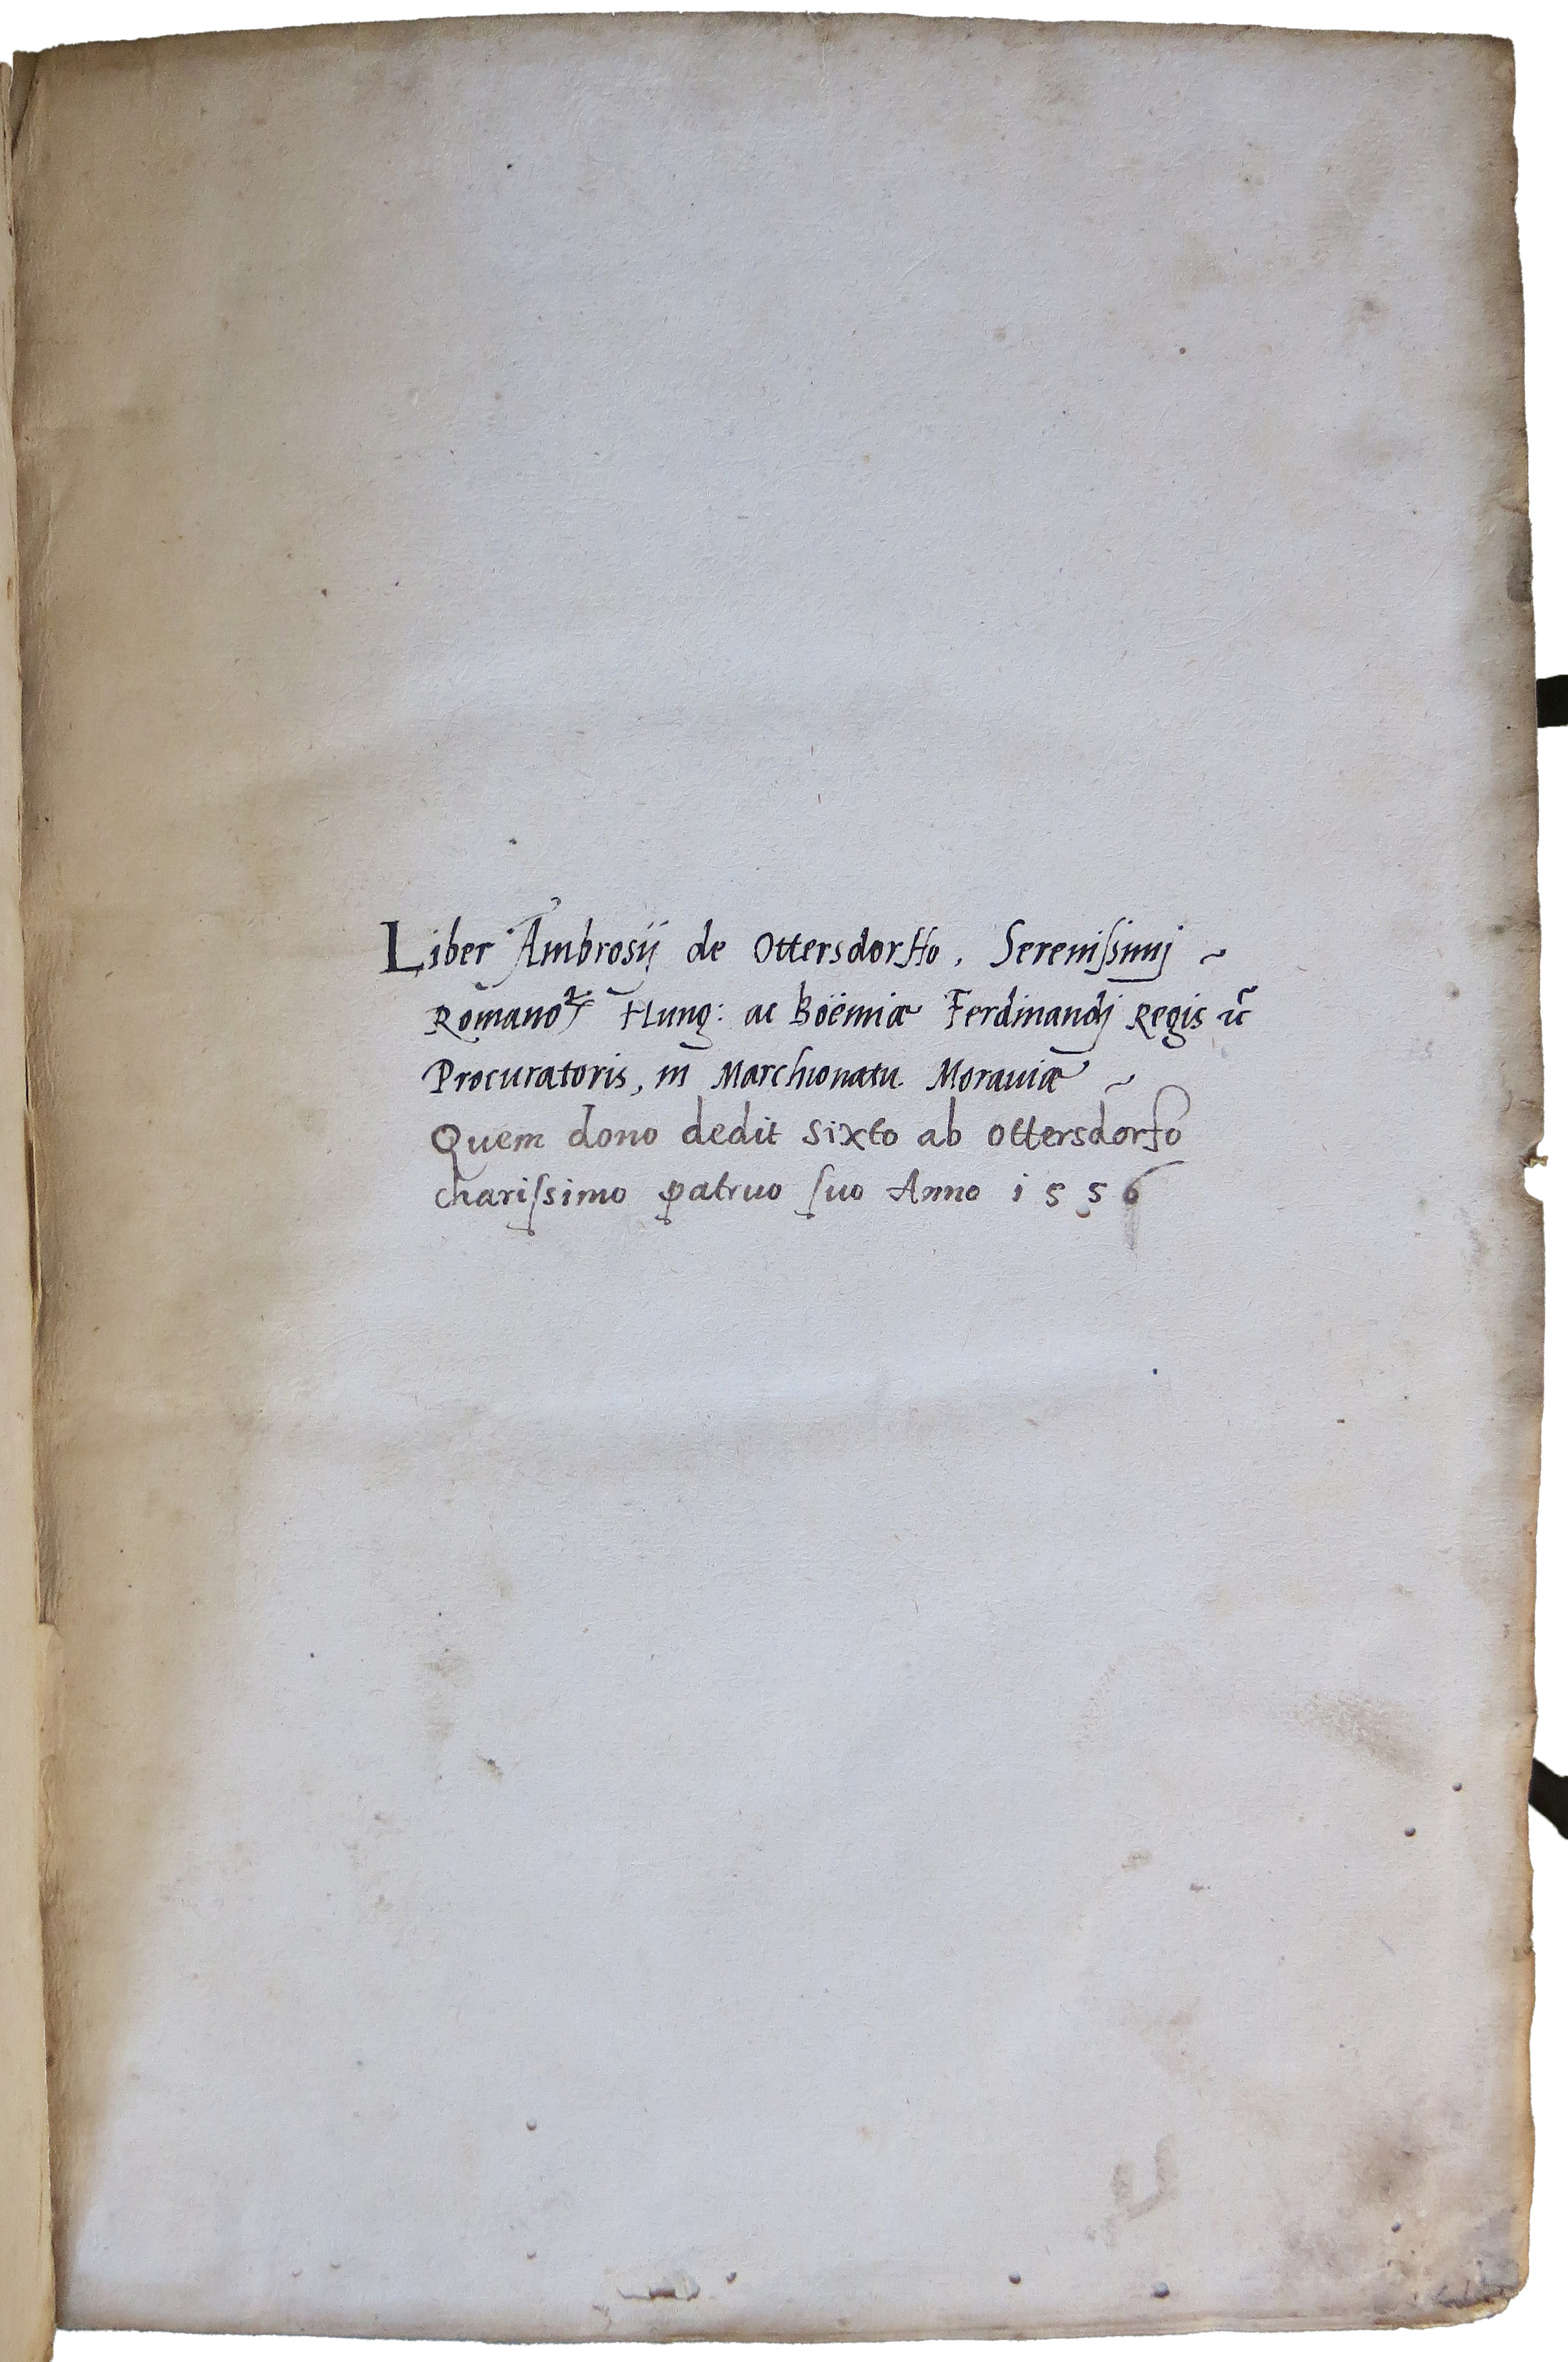 Liber Ambrosij de Ottersdorffo, Sereniſsimj ~
Romanoꝝ Hung: ac Boëmiæ Ferdinandj Regis ꝛc̃
Procuratoris, in Marchionatu Morauiæ ~
Quem dono dedit Sixto ab Ottersdorfo
chariſsimo patruo ſuo Anno i556